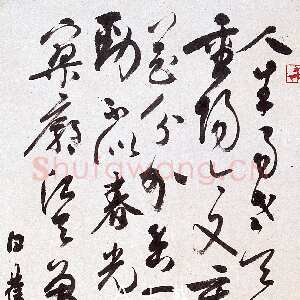 人生易老天
重陽今又重
花分外香一
勁不似春光
寥廓江天萬
白蕉
Shufawang.cn